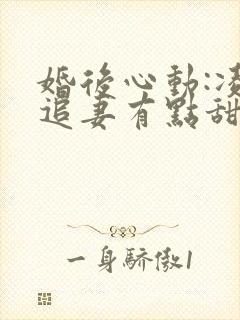 婚後心動:凌
追妻有點甜
一身驕傲1